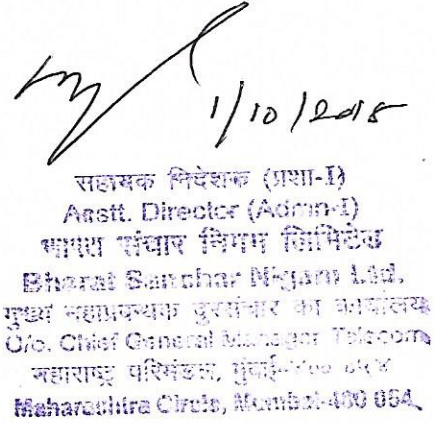 1/10/2018
सहायक निदेशक (प्रशा-I)
Asstt. Director (Admn-I)
भारत संचार निगम लिमिटेड
Bharat Sanchar Nigam Ltd.
मुख्य महाप्रबन्धक दूरसंचार का कार्यालय
O/o. Chief General Manager Telecom,
महाराष्ट्र परिमंडल, मुंबई-
Maharashtra Circle, Mumbai-400 054.